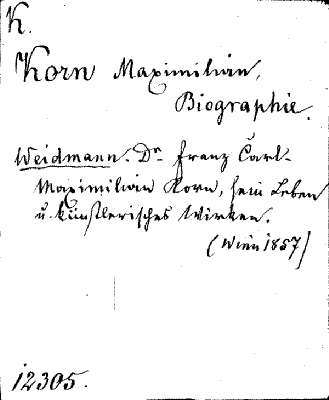 K.
Korn Maximilian,
Biographie.
Weidmann. Dr. Franz Carl-
Maximilian Korn, sein Leben
u. künstlerisches Wirken.
(Wien 1857)
12305.